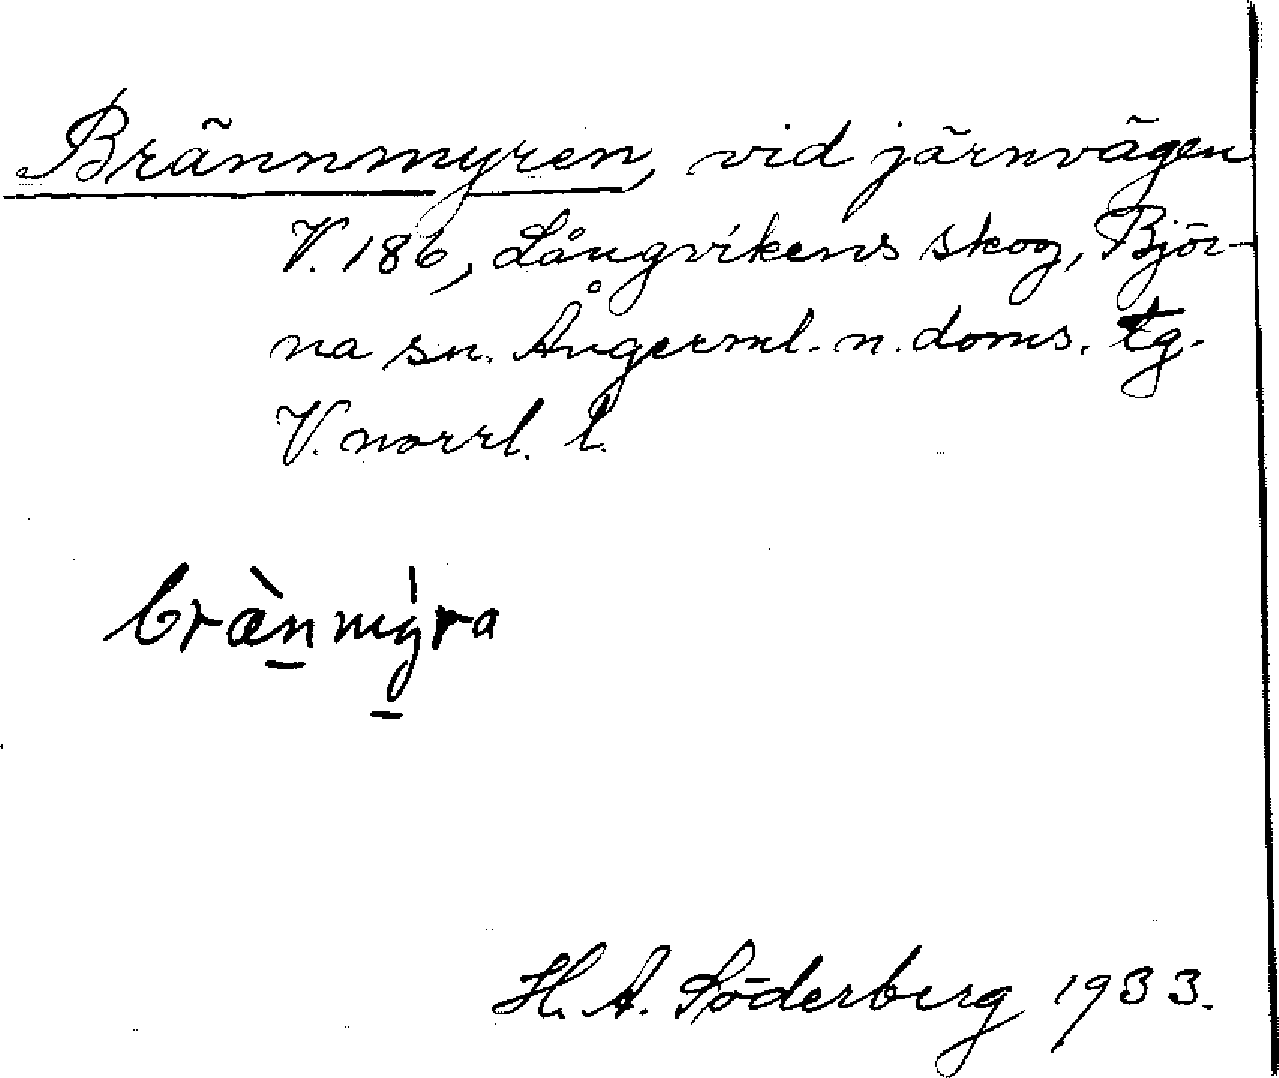 Brännmyren, vid järnvägen
V. 186, Långvikens skog, Björ-
na sn. Ångerml. n. doms. tg.
V. norrl. l.
bræ̀nmỳra
H. A. Söderberg 1933.